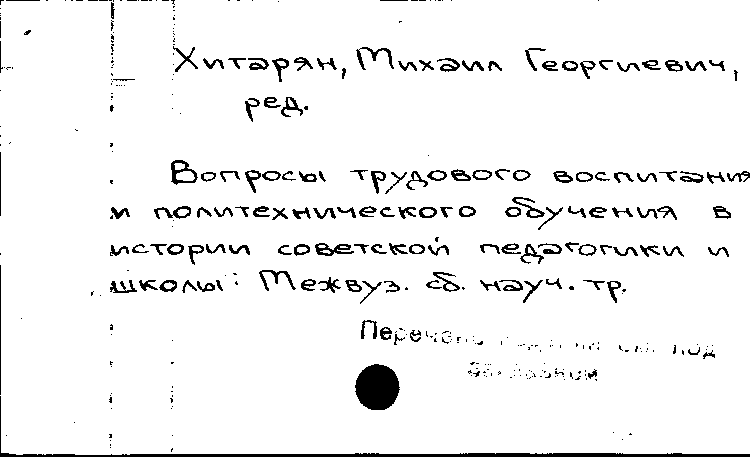 Хитарян, Михаил Георгиевич,
ред.
Вопросы трудового воспитания
и политехнического обучения в
истории советской педагогики и
школы: Межвуз. сб. науч. тр.
Перечень под